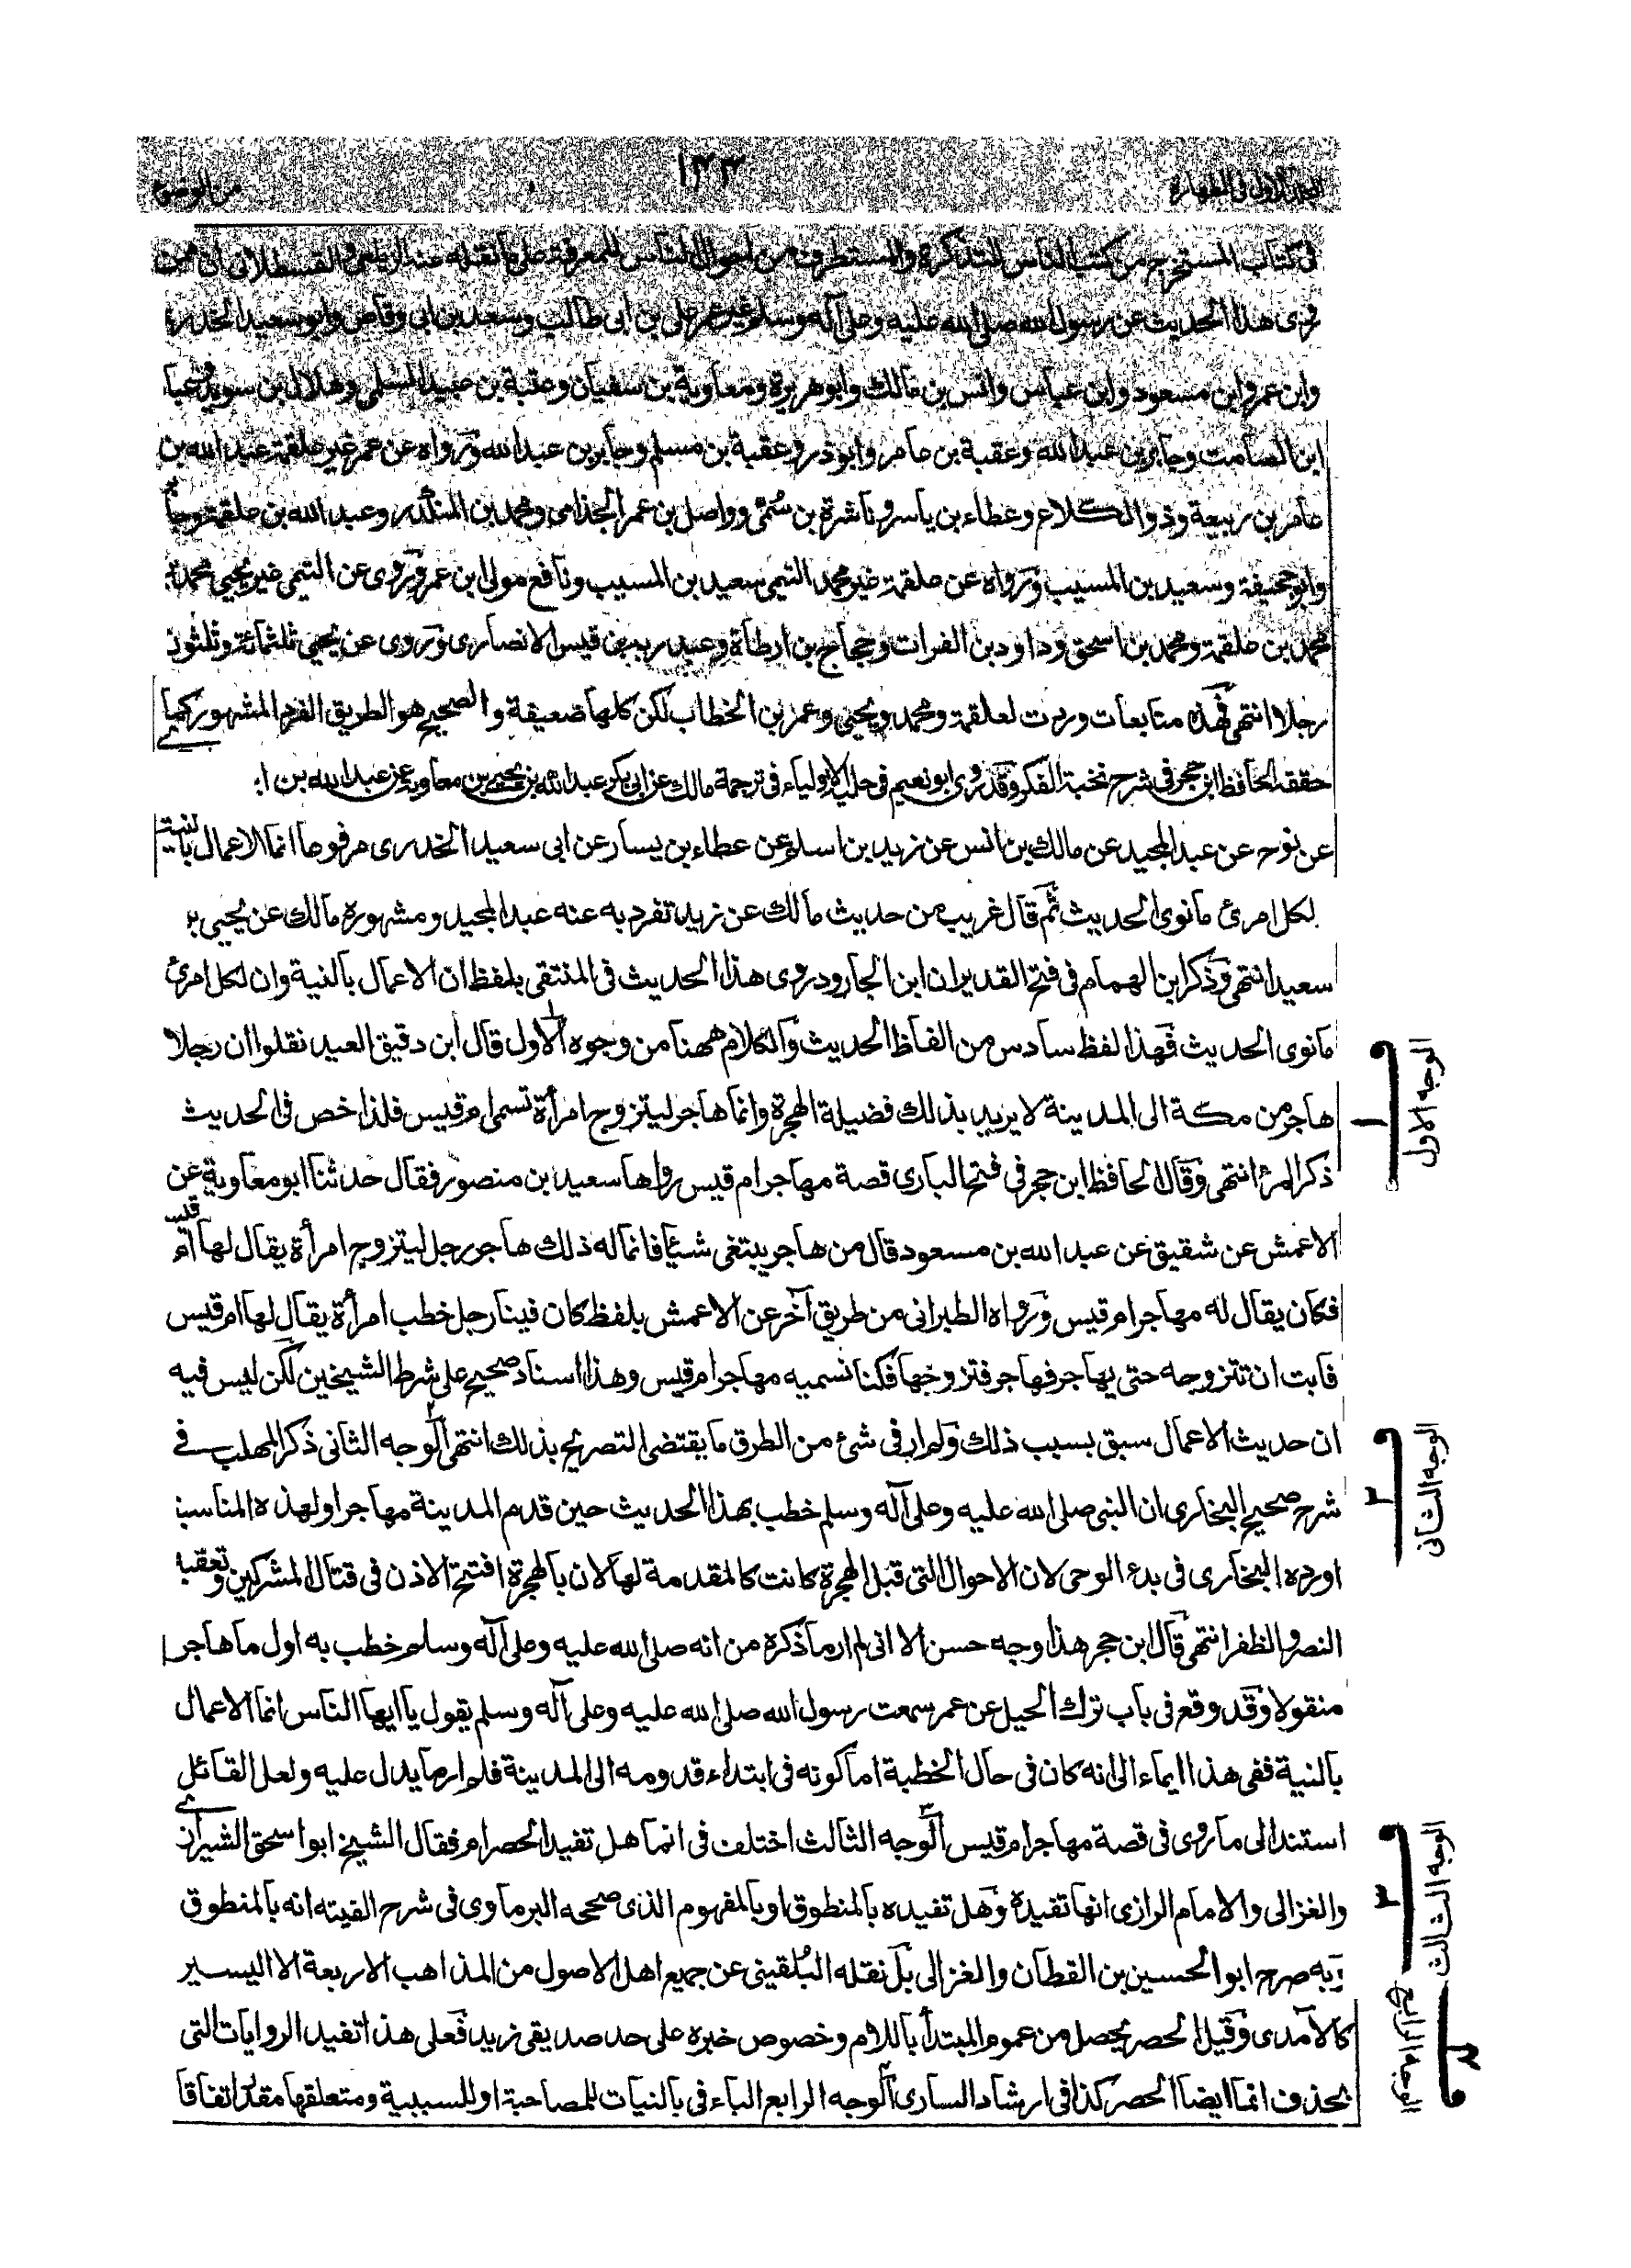 ١٣٣
من الوضوء
فى كتاب المستخرج من كتب الناس للتذكرة والمستطرف من احوال الناس للمعرفة على ما نقله عنه الزيلعى والقسطلانى ان ممن
روى هذا الحديث عن رسول الله صلى الله عليه وعلى آله وسلم غير عمر على بن ابى طالب وسعد بن ابى وقاص وابو سعيد الخدرى
وابن عمر وابن مسعود وابن عباس وانس بن مالك وابو هريرة ومعاوية بن سفيان وعتبة بن عبيد السلمى وهلال بن سويد وعبا
ابن الصامت وجابر بن عبد الله وعقبة بن عامر وابو ذر وعقبة بن مسلم وجابر بن عبد الله ورواه عن عمر غير علقمة عبد الله بن
عامر بن ربيعة وذو الكلاع وعطاء بن ياسر وناشرة بن سُمَىّ وواصل بن عمر الجذامى ومحمد بن المنكدر وعبد الله بن علقمة وجا
وابو جحيفة وسعيد بن المسيب ورواه عن علقمة غير محمد التيمى سعيد بن المسيب ونافع مولى ابن عمر وروى عن التيمى غير يحيى محمد بن
محمد بن علقمة ومحمد بن اسحق وداود بن الفرات وحجاج بن ارطاة وعبد ربه بن قيس الانصارى وروى عن يحيى ثلثمائة وثلثون
رجلا انتهى فهذه متابعات وردت لعلقمة ومحمد ويحيى وعمر بن الخطاب لكن كلها ضعيفة والصحيح هو الطريق الفرد المشهور كما
حققه الحافظ ابن حجر فى شرح نخبة الفكر وقد روى ابو نعيم فى حلية الاولياء فى ترجمة مالك عن ابى بكر عبد الله بن يحيى بن معاوية عن عبد الله بن ا
عن نوح عن عبد المجيد عن مالك بن انس عن زيد بن اسلم عن عطاء بن يسار عن ابى سعيد الخدرى مرفوعا انما الاعمال بالنية
لكل امرئ ما نوى الحديث ثم قال غريب من حديث مالك عن زيد تفرد به عنه عبد المجيد ومشهوره مالك عن يحيى بر
سعيد انتهى وذكر ابن الهمام فى فتح القدير ان ابن الجارود روى هذا الحديث فى المنتقى بلفظ ان الاعمال بالنية وان لكل امرئ
ما نوى الحديث فهذا لفظ سادس من الفاظ الحديث والكلام ههنا من وجوه الاول قال ابن دقيق العيد نقلوا ان رجلا
هاجر من مكة الى المدينة لا يريد بذلك فضيلة الهجرة وانما هاجر ليتزوج امرأة تسمى ام قيس فلذا خص فى الحديث
ذكر المرأ انتهى وقال الحافظ ابن حجر فى فتح البارى قصة مهاجر ام قيس رواها سعيد بن منصور فقال حدثنا ابو معاوية عن
الاعمش عن شقيق عن عبد الله بن مسعود قال من هاجر يبتغى شيئا فانما له ذلك هاجر رجل ليتزوج امرأة يقال لها ام قيس
فكان يقال له مهاجر ام قيس ورواه الطبرانى من طريق آخر عن الاعمش بلفظ كان فينا رجل خطب امرأة يقال لها ام قيس
فابت ان تتزوجه حتى يهاجر فهاجر فتزوجها فكنا نسميه مهاجر ام قيس وهذا اسناد صحيح على شرط الشيخين لكن ليس فيه
ان حديث الاعمال سبق بسبب ذلك ولم ار فى شئ من الطرق ما يقتضى التصريح بذلك انتهى الوجه الثانى ذكر المهلب فى
شرح صحيح البخارى ان النبى صلى الله عليه وعلى آله وسلم خطب بهذا الحديث حين قدم المدينة مهاجرا ولهذه المناسبة
اورده البخارى فى بدء الوحى لان الاحوال التى قبل الهجرة كانت كالمقدمة لها لان بالهجرة افتتح الاذن فى قتال المشركين وتعقبه
النصر والظفر انتهى قال ابن حجر هذا وجه حسن الا انى لم ار ما ذكره من انه صلى الله عليه وعلى آله وسلم خطب به اول ما هاجر
منقولا وقد وقع فى باب ترك الحيل عن عمر سمعت رسول الله صلى الله عليه وعلى آله وسلم يقول يا ايها الناس انما الاعمال
بالنية ففى هذا ايماء الى انه كان فى حال الخطبة اما كونه فى ابتداء قدومه الى المدينة فلم ار ما يدل عليه ولعل القائل
استند الى ما روى فى قصة مهاجر ام قيس الوجه الثالث اختلف فى انما هل تفيد الحصر ام فقال الشيخ ابو اسحق الشيرازى
والغزالى والامام الرازى انها تفيده وهل تفيده بالمنطوق او بالمفهوم الذى صححه البرماوى فى شرح الفيته انه بالمنطوق
وبه صرح ابو الحسين بن القطان والغزالى بل نقله البُلقينى عن جميع اهل الاصول من المذاهب الاربعة الا اليسير
كالآمدى وقيل الحصر يحصل من عموم المبتدأ باللام وخصوص خبره على حد صديقى زيد فعلى هذا تفيد الروايات التى
بحذف انما ايضا الحصر كذا فى ارشاد السارى الوجه الرابع الباء فى بالنيات للمصاحبة او للسببية ومتعلقها مقدر اتفاقا
الوجه الاول
١
الوجه الثانى
٢
الوجه الثالث
٣
الوجه الرابع
٤